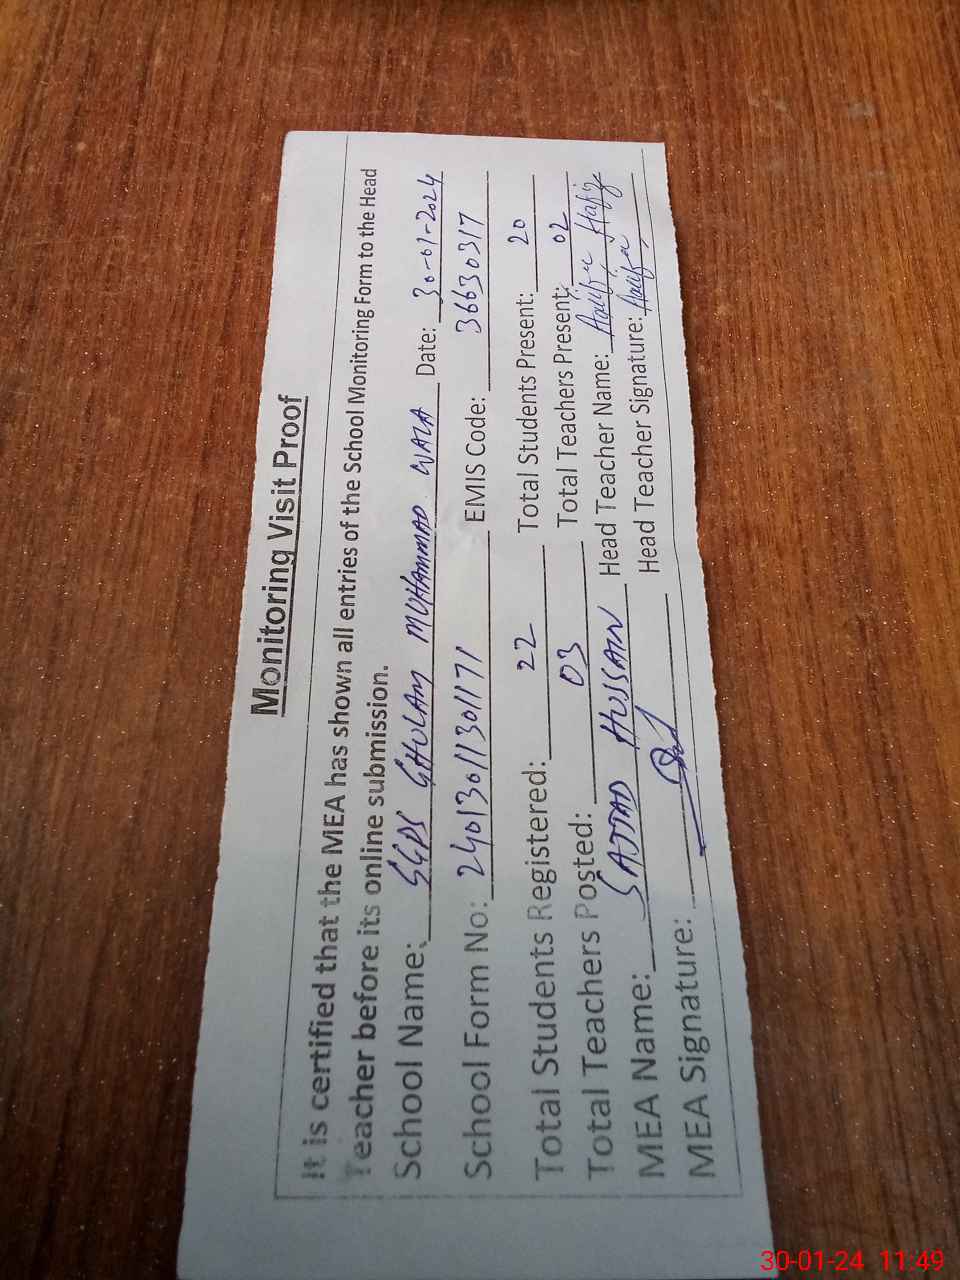 Monitoring Visit Proof
It is certified that the MEA has shown all entries of the School Monitoring Form to the Head
Teacher before its online submission.
School Name: GGPS GHULAM MUHAMMAD WALA Date: 30-01-2024
School Form No: 24013011301171 EMIS Code: 36630317
Total Students Registered: 22 Total Students Present: 20
Total Teachers Posted: 03 Total Teachers Present: 02
MEA Name: SAJJAD HUSSAIN Head Teacher Name: Hafiz
MEA Signature: Head Teacher Signature:
30-01-24 11:49